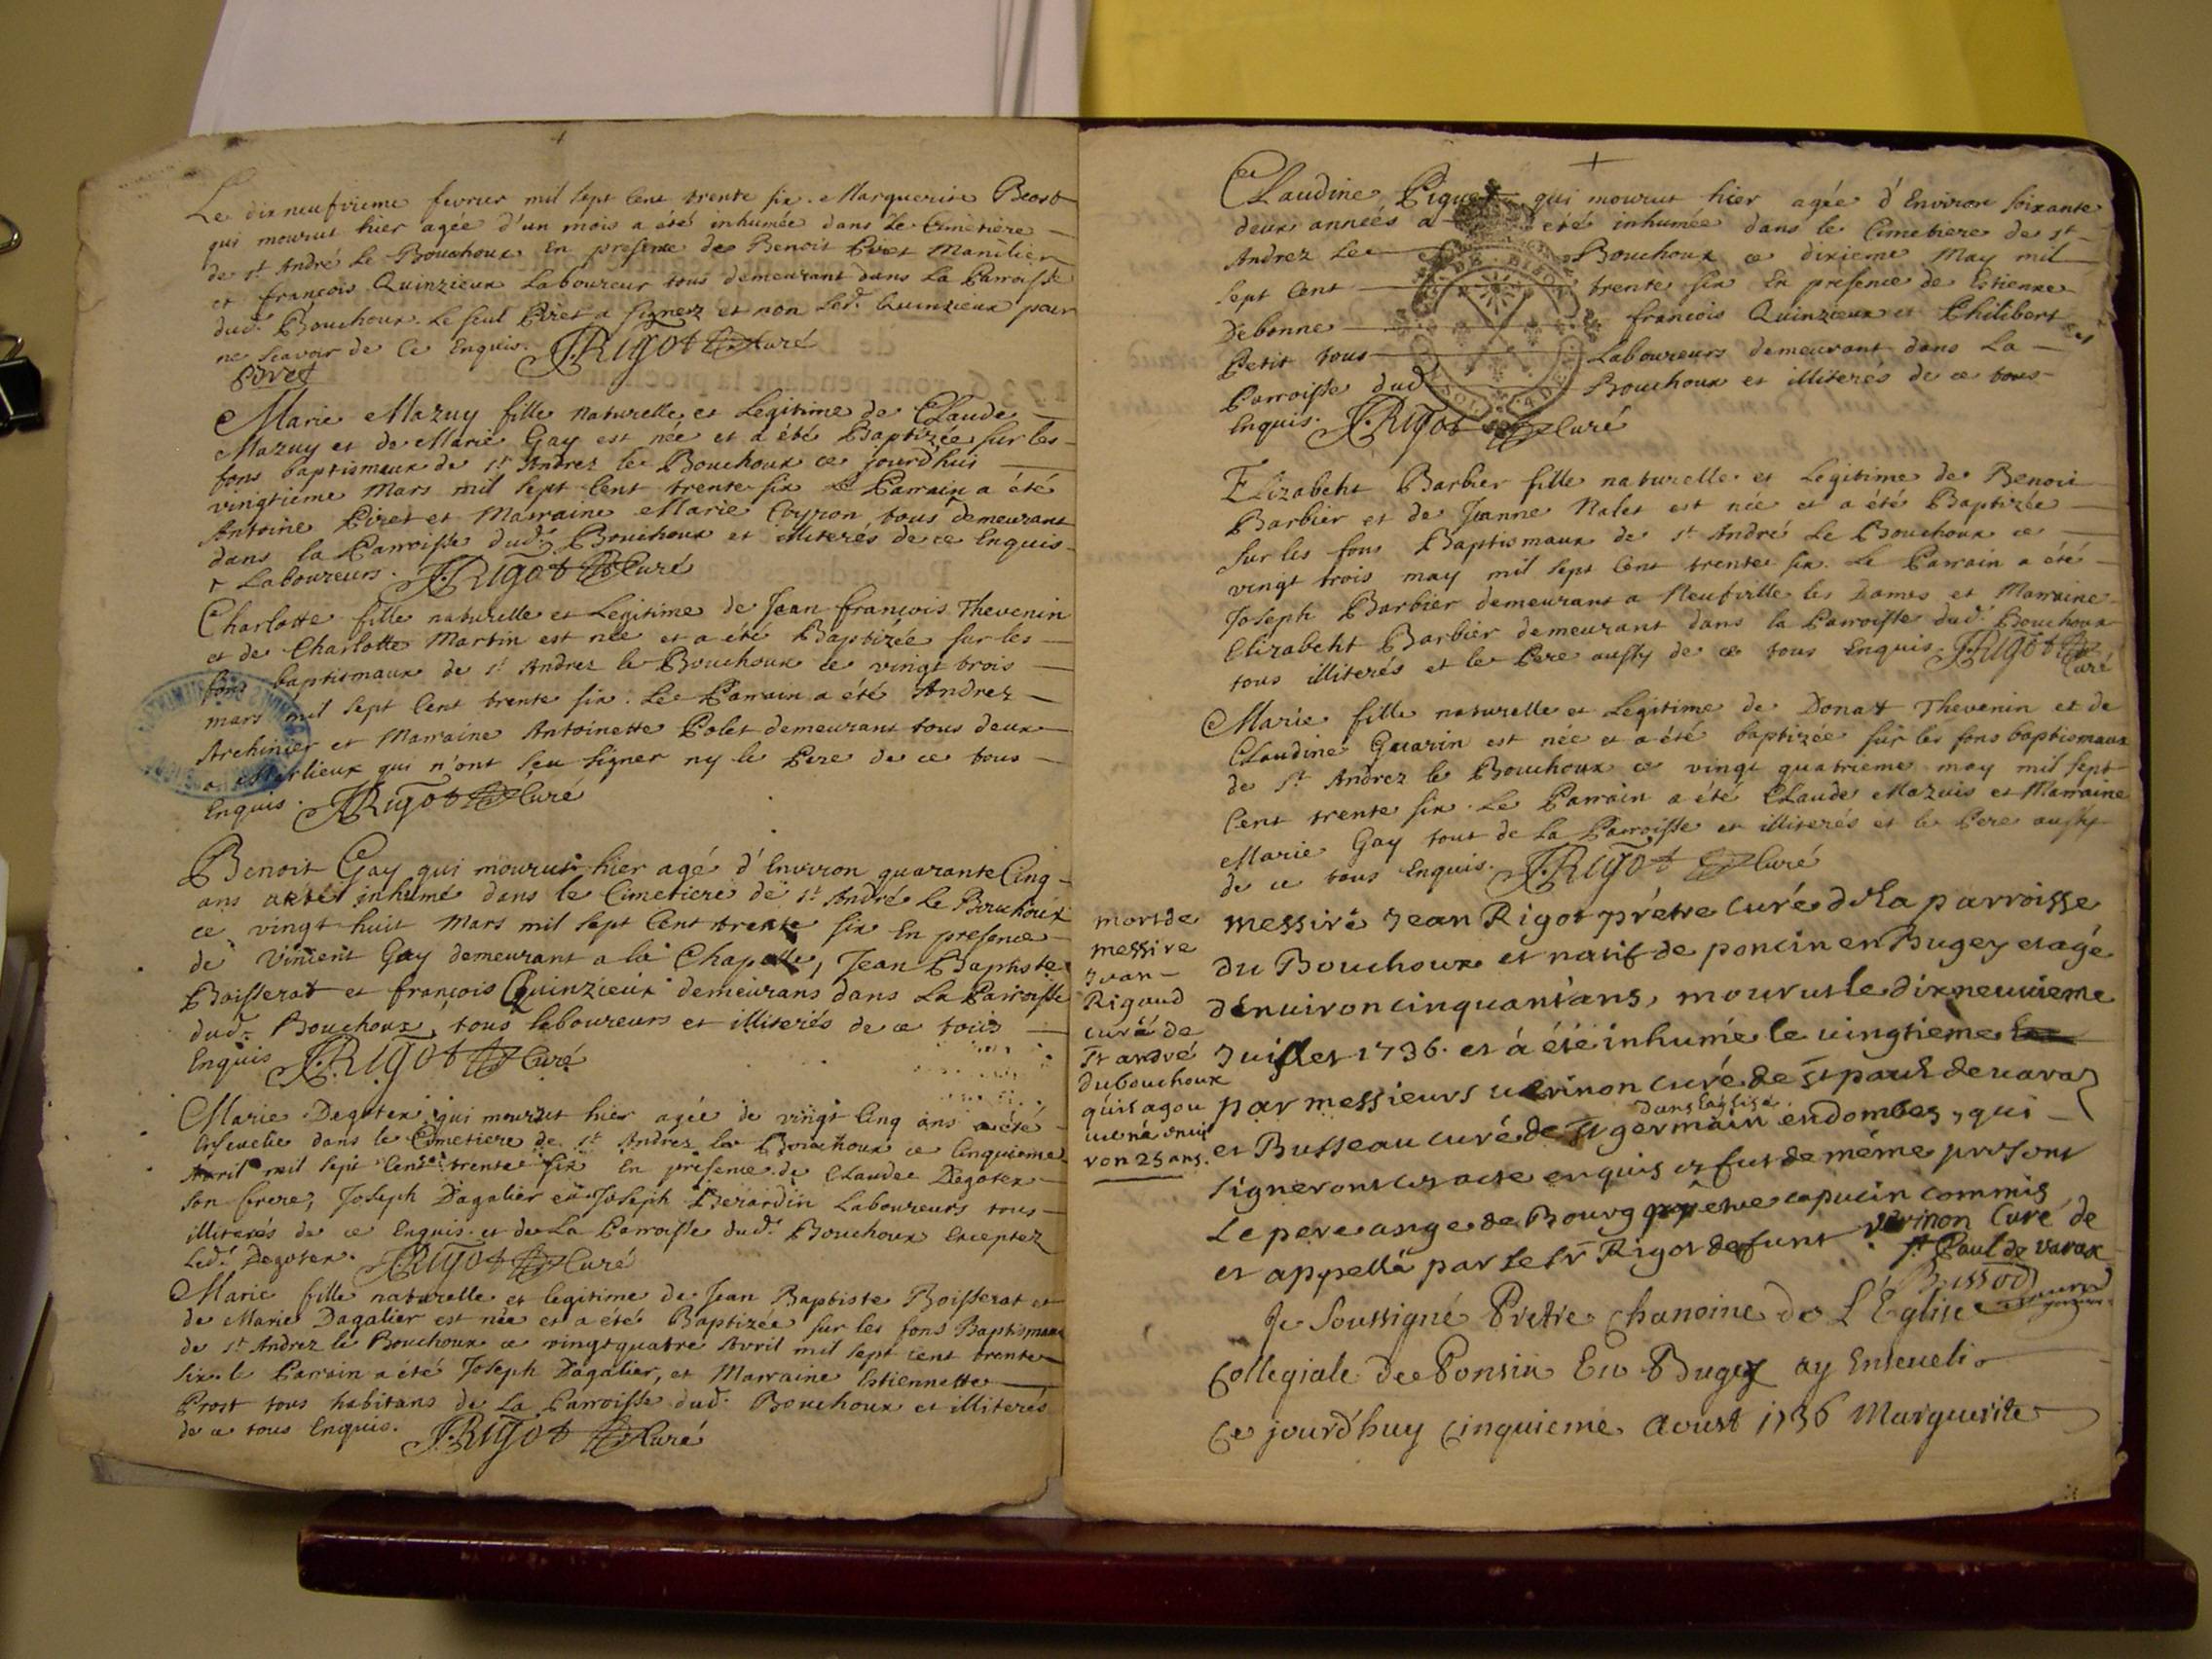 Le dix neufvieme fevrier mil sept Cent trente six. Marguerite Beost
qui mourut hier agée d'un mois a été inhumée dans Le Cimetiere
de st André Le Bouchoux En presence de Benoit Piret Manilier
et françois Quinzieux Laboureur tous demeurant dans La Parroisse
dud. Bouchoux. Le seul Piret a signez et non Led. Quinzieux pour
ne scavoir de Ce Enquis. J. Rigot Curé
Pivet
Marie Mazuy fille naturelle et Legitime de Claude
Mazuy et de Marie Gay est née et a été Baptizée sur les
fons baptismaux de st Andrez le Bouchoux ce jourd'huis
vingtieme Mars mil sept Cent trente six Le Parrain a été
Antoine Piret et Marraine Marie Coyron tous demeurant
dans la Parroisse dud. Bouchoux et illiterés de ce Enquis
+ Laboureurs. J. Rigot Curé
Charlotte fille naturelle et Legitime de Jean françois Thevenin
et de Charlotte Martin est née et a été Baptizée sur les
fons baptismaux de st Andrez le Bouchoux ce vingt trois
mars mil sept Cent trente six. Le Parrain a été Andrez
Archinier et Marraine Antoinette Polet demeurant tous deux
a Marlieux qui n'ont seu signer ny le Pere de ce tous
Enquis. J. Rigot Curé
Benoit Gay qui mourut hier agé d'Environ quarante Cinq
ans a été inhumé dans le Cimetiere de st André Le Bouchoux
ce vingt huit Mars mil sept Cent trente six En presence
de Vincent Gay demeurant a la Chapelle, Jean Baptiste
Boisserat et françois Quinzieux demeurans dans La Parroisse
dud. Bouchoux, tous laboureurs et illiterés de ce tous
Enquis J. Rigot Curé
Marie Degotex qui mourut hier agée de vingt Cinq ans a été
Ensevelie dans le Cimetiere de st Andrez le Bouchoux ce Cinquieme
Avril mil sept Cent trente six En presence de Claudee Degotex
son frere, Joseph Dagalier et Joseph Berardin Laboureurs tous
illiterés de ce Enquis et de La Parroisse dud. Bouchoux Exceptez
Led. Degotex. J. Rigot Curé
Marie fille naturelle et legitime de Jean Baptiste Boisserat et
de Marie Dagalier est née et a été Baptizée sur les fons Baptismaux
de st Andrez le Bouchoux ce vingt quatre Avril mil sept cent trente
six. le Parrain a été Joseph Dagalier, et Marraine Estiennette
Prost tous habitans de La Parroisse dud. Bouchoux et illiterés
de ce tous Enquis. J. Rigot Curé
Claudine Piquet qui mourut hier agée d'Environ soixante
deux années a été inhumée dans le Cimetiere de st
Andrez Le Bouchoux ce dixieme May mil
sept Cent trente six En presence de Estienne
Debonne françois Quinzieux et Philibert
Petit tous Laboureurs demeurant dans La
Parroisse dud Bouchoux et illiterés de ce tous
Enquis. J. Rigot Curé
Elizabeht Barbier fille naturelle et Legitime de Benoi
Barbier et de Jeanne Nalet est née et a été Baptizée
sur les fons Baptismaux de st André Le Bouchoux ce
vingt trois may mil sept Cent trente six. Le Parrain a été
Joseph Barbier demeurant a Neufville les Dames et Marraine
Elizabeht Barbier demeurant dans la Parroisse dud. Bouchoux
tous illiterés et le Pere aussy de ce tous Enquis. J. Rigot
Curé
Marie fille naturelle et Legitime de Donat Thevenin et de
Claudine Guarin est née et a été baptizée sur les fons baptismaux
de st Andrez le Bouchoux ce vingt quatrieme may mil sept
Cent trente six. Le Parrain a été Claude Mazuis et Marraine
Marie Gay tout de La Parroisse et illiterés et le Pere aussy
de ce tous Enquis. J. Rigot Curé
mort de
messire
Jean
Rigaud
curé de
St André
du bouchoux
quil a gou
verné envi
ron 25 ans.
messire Jean Rigot prétre curé de la parroisse
du Bouchoux et natif de poncin en Bugey et agé
d'environ cinquant'ans, mourut le dixneuvieme
Juillet 1736. et à été inhumé le vingtieme
par messieurs verinon curé de st paul de varax
dans l'eglise
et Busseau curé de St germain en dombes, qui
signeront cet acte enquis et fut de méme present
Le pere ange de Bourg prêtre capucin commis
et appellé par le sr Rigot defunt verinon Curé de
st Paul de varax
Je Soussigné Pretre Chanoine de L'Eglise
Collegiale de Ponsin En Bugey ay Enseueli
Ce jourd'huy Cinquieme Aoust 1736 Marguerite